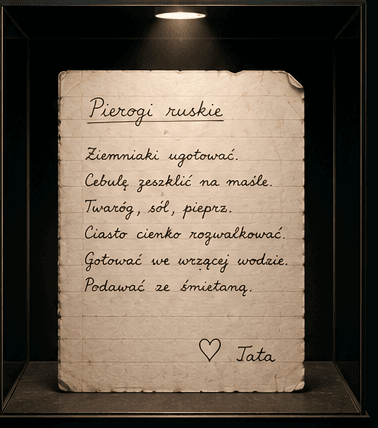 Pierogi ruskie
Ziemniaki ugotować.
Cebulę zeszklić na maśle.
Twaróg, sól, pieprz.
Ciasto cienko rozwałkować.
Gotować we wrzącej wodzie.
Podawać ze śmietaną.
♡ Tata